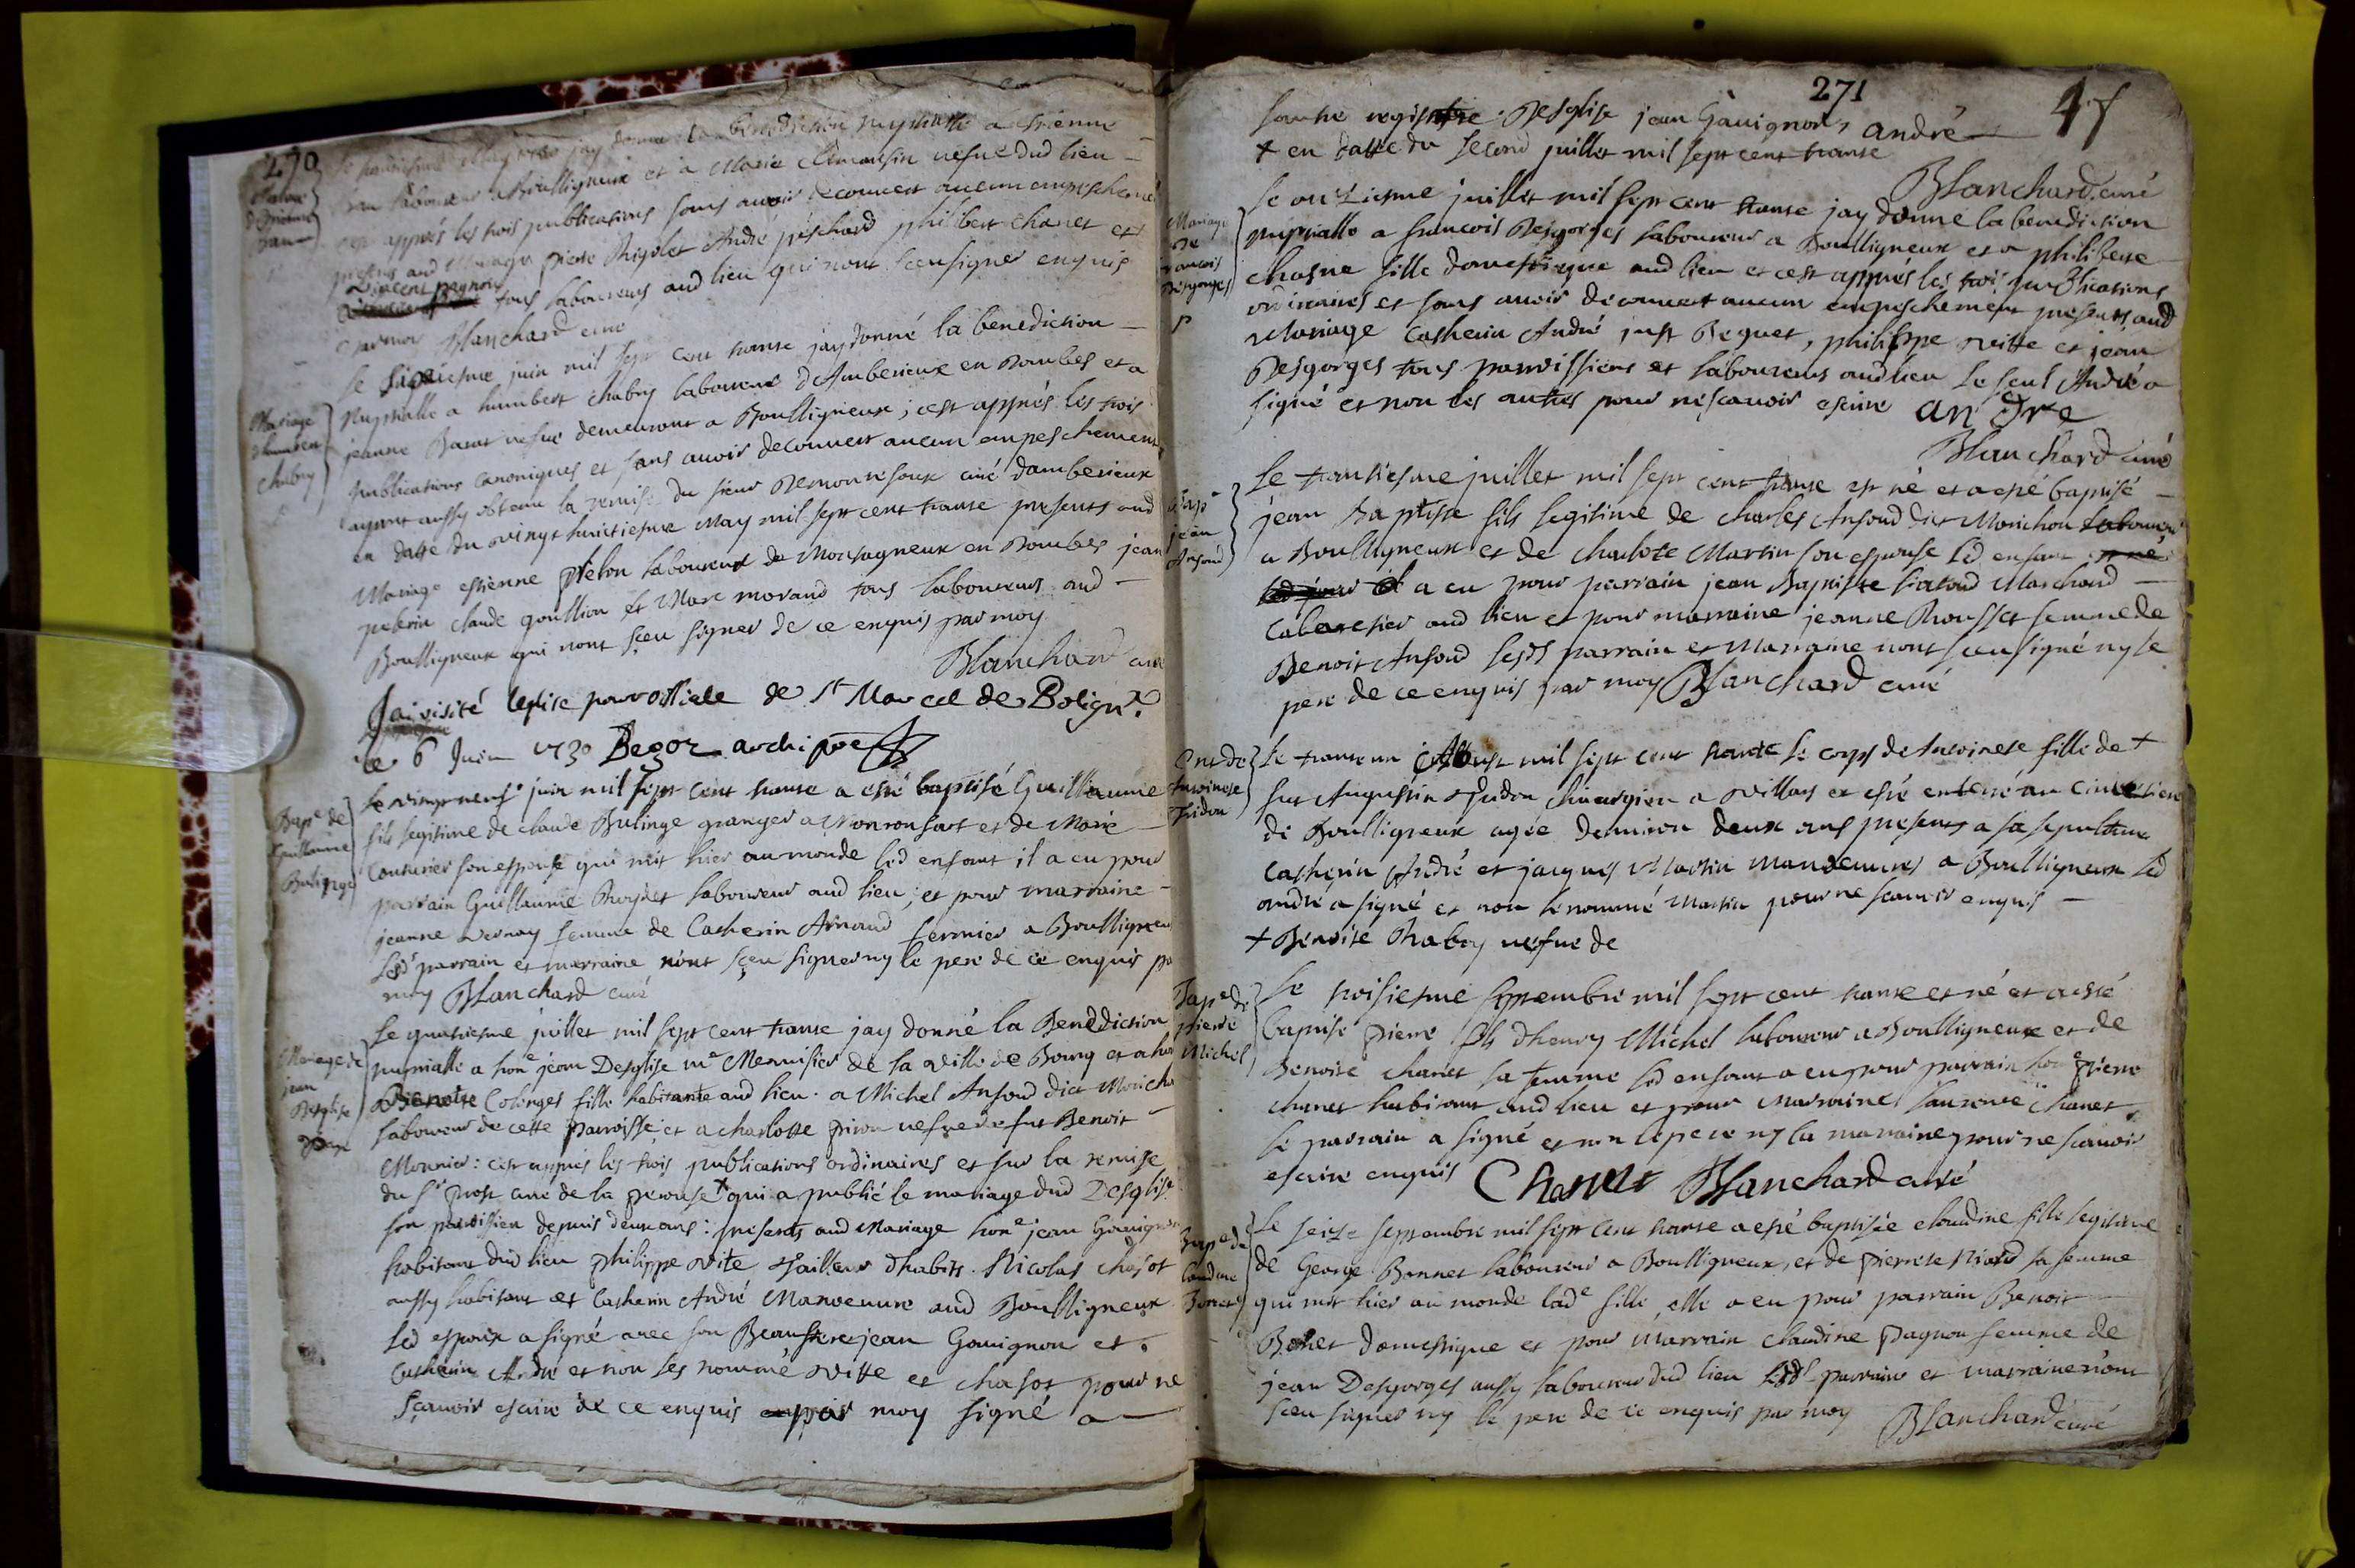 270
jay donne la benediction nuptialle a estienne
laboureur a Boulligneux et a Marie Limousin vefue dud lieu
appres les trois publications sans auoir decouuert aucun empeschement
presens aud Mariage pierre Rigolet André peschard philibert Chanet et
Vincent pagnon
tous laboureurs aud lieu qui nont sceu signer enquis
par moy Blanchard curé
Mariage
dhumbert
chabry
Le sixiesme juin mil sept cent trante jay donné la benediction
Nuptialle a humbert chabry laboureur dAmberieux en Dombes et a
jeanne Barat vefue demeurant a Boulligneux ; cest appres les trois
publications canoniques et sans auoir decouuert aucun empeschement
ayant aussy obtenu la remise du sieur curé damberieux
en datte du vingt huictiesme May mil sept cent trante presents aud
Mariage estienne pelon laboureur de Monsagneux en Dombes jean
peberin claude goullion et Marc morand tous laboureurs aud
Boulligneux qui nont sceu signer de ce enquis par moy
Blanchard curé
Jai visité leglise parroissiale de St Marcel de Bolign.x
le 6 Juin 1730 Begoz archiptre
Bapt de
Guillaume
Bulinge
Le vingt neuf juin mil sept cent trante a esté baptisé Guillaume
fils legitime de claude Bulinge granger a Monronsart et de Marie
Couturier son espouse qui mit hier au monde led enfant il a eu pour
parrain Guillaume Roydet laboureur aud lieu ; et pour marraine
jeanne vernay femme de Catherin Arnaud fermier a Boulligneux
Lesd parrain et marraine nont sceu signer ny le pere de ce enquis par
moy Blanchard curé
Mariage de
jean
Desglise
Le quatriesme juillet mil sept cent trante jay donné la Benediction
nuptialle a hone jean Desglise me Menuisier de la ville de Bourg et a hon
Benoite Colonges fille habitante aud lieu . a Michel Anfoud dict Monicho
laboureur de cette parroisse et a charlotte piron vefue de fut Benoit
Monnier : cest appres les trois publications ordinaires et sur la remise
du sr prost curé de la perouse + qui a publié le mariage dud Desglise
son parroissien depuis deux ans : presents aud Mariage hone jean Gauignon
habitant dud lieu philippe vite tailleur dhabits Nicolas chasot
aussy habitant et Catherin André Manoeuure aud Boulligneux
Led espoux a signé auec son Beaufrere jean Gauignon et
Catherin André et non les nommé vitte et chasot pour ne
scauoir escrire de ce enquis par moy signé a
271
47
lautre registre . Desglise jean Gauignon, andré
+ en datte du second juillet mil sept cent trante
Blanchard curé
Mariage
de
francois
Desgorges
Le onziesme juillet mil sept cent trante jay donne la benediction
nuptialle a francois Desgorges laboureur a Boulligneux et a philiberte
chasne fille domestique aud lieu et cest appres les trois publications
ordinaires et sans auoir decouuert aucun empeschement presents aud
Mariage Catherin André just Beguet, philippe vitte et jean
Desgorges tous parroissiens et laboureurs aud lieu le seul André a
signé et non les autres pour ne scauoir escrire an dre
Blanchard curé
Bapt
jean
Anfoud
Le trantiesme juillet mil sept cent trante est né et a esté baptisé
jean Baptiste fils legitime de charles Anfoud dict Monichon laboureur
a Boulligneux et de charlote Martin son espouse led enfant
a eu pour parrain jean Baptiste Marchand
cabaretier aud lieu et pour marraine jeanne Rousset femme de
Benoit Anfoud lesds parrain et Marraine nont sceu signé ny le
pere de ce enquis par moy Blanchard curé
Ent de
Antoinete
Tridon
Le trante un Aoust mil sept cent trante le corps de Antoinete fille de +
fut Augustin Tridon chirurgien a villars et esté enterré au cimetiere
de Boulligneux agée denuiron deux ans presents a sa sepulture
Catherin André et jacques Martin manoeuures a Boulligneux led
andré a signé et non le nommé Martin pour ne scauoir enquis
+ Benoite Chabry vefue de
Bapt de
pierre
Michel
Le troisiesme septembre mil sept cent trante est né et a esté
baptisé pierre fils dhenry Michel laboureur a Boulligneux et de
Benoite chanet sa femme led enfant a eu pour parrain hone pierre
chanet habitant aud lieu et pour marraine laurence chanet
le parrain a signé et non le pere ny la marraine pour ne scauoir
escrire enquis Chanet Blanchard curé
Bapt de
Claudine
Bonnet
Le seize septembre mil sept cent trante a esté baptisée claudine fille legitime
de George Bonnet laboureur a Boulligneux, et de pierrete sa femme
qui mit hier au monde lade fille elle a eu pour parrain Benoit
Bonet domestique et pour Marrain claudine pagnon femme de
jean Desgorges aussy laboureur dud lieu lesds parrains et marraine n'ont
sceu signer ny le pere de ce enquis par moy Blanchard curé